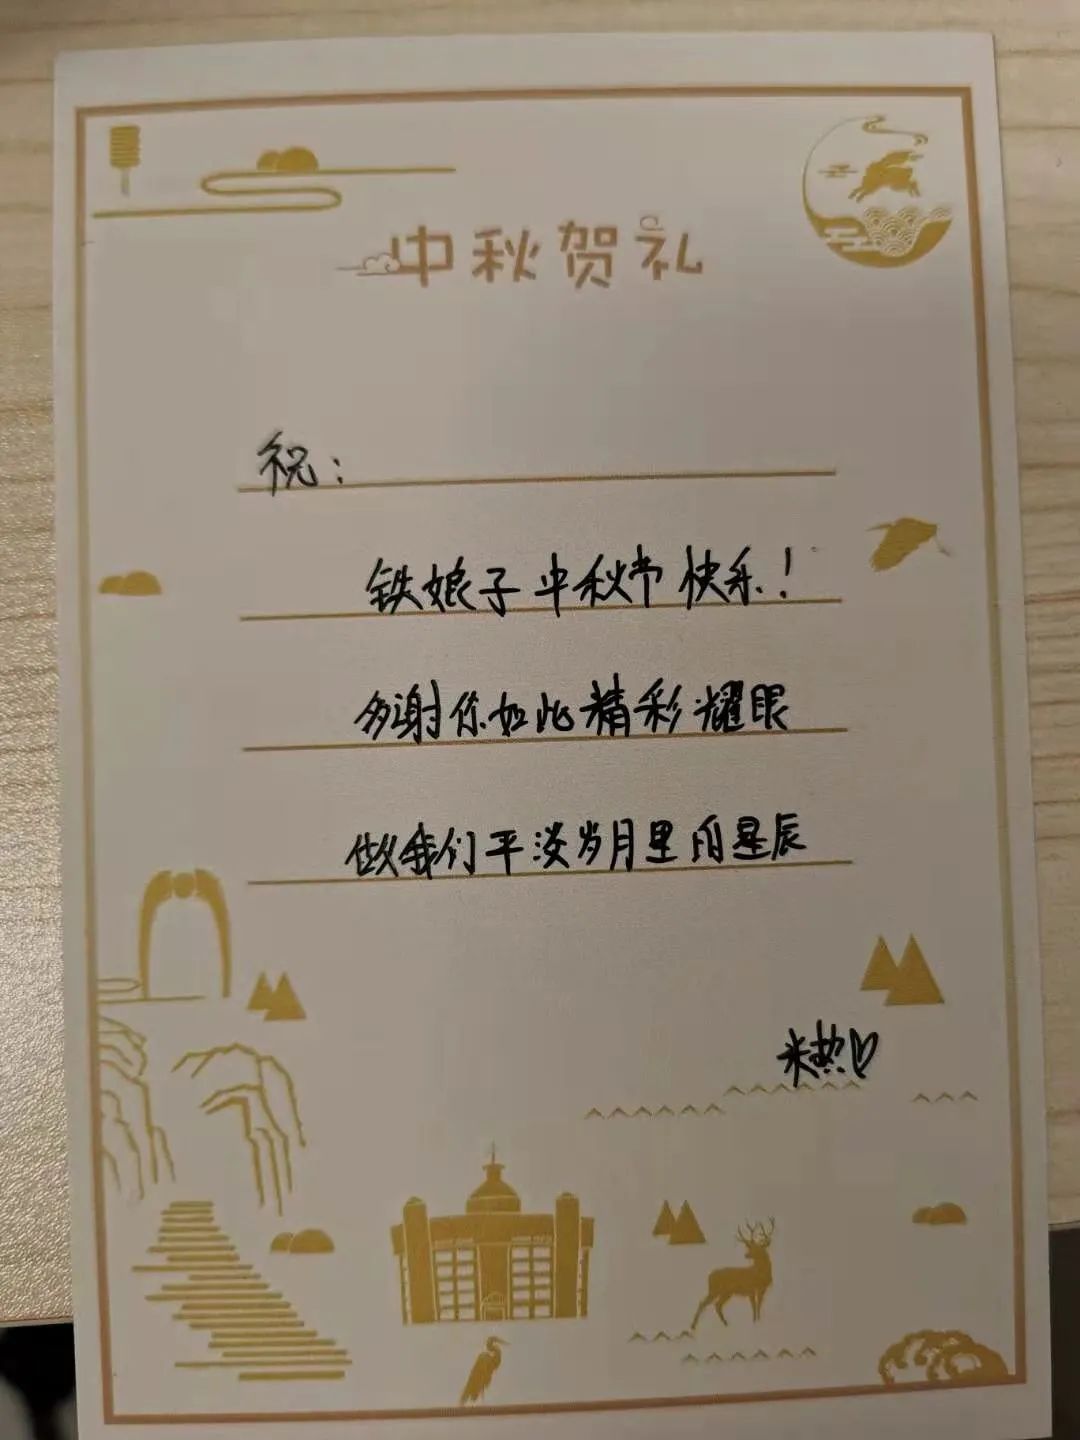 中秋贺礼
祝：
铁娘子中秋节快乐！
多谢你如此精彩耀眼
做我们平淡岁月里的星辰